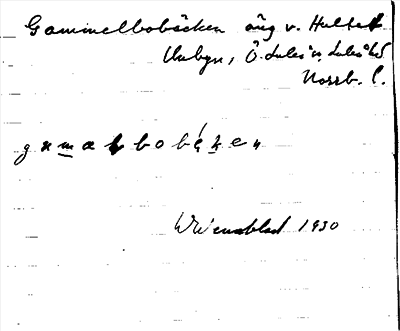 Gammelbobäcken äng v. Hultet
Unbyn, Ö. Luleå sn, Luleå td
Norrb. l.
g a m a l b o b ä k e n
Wiensblad 1930